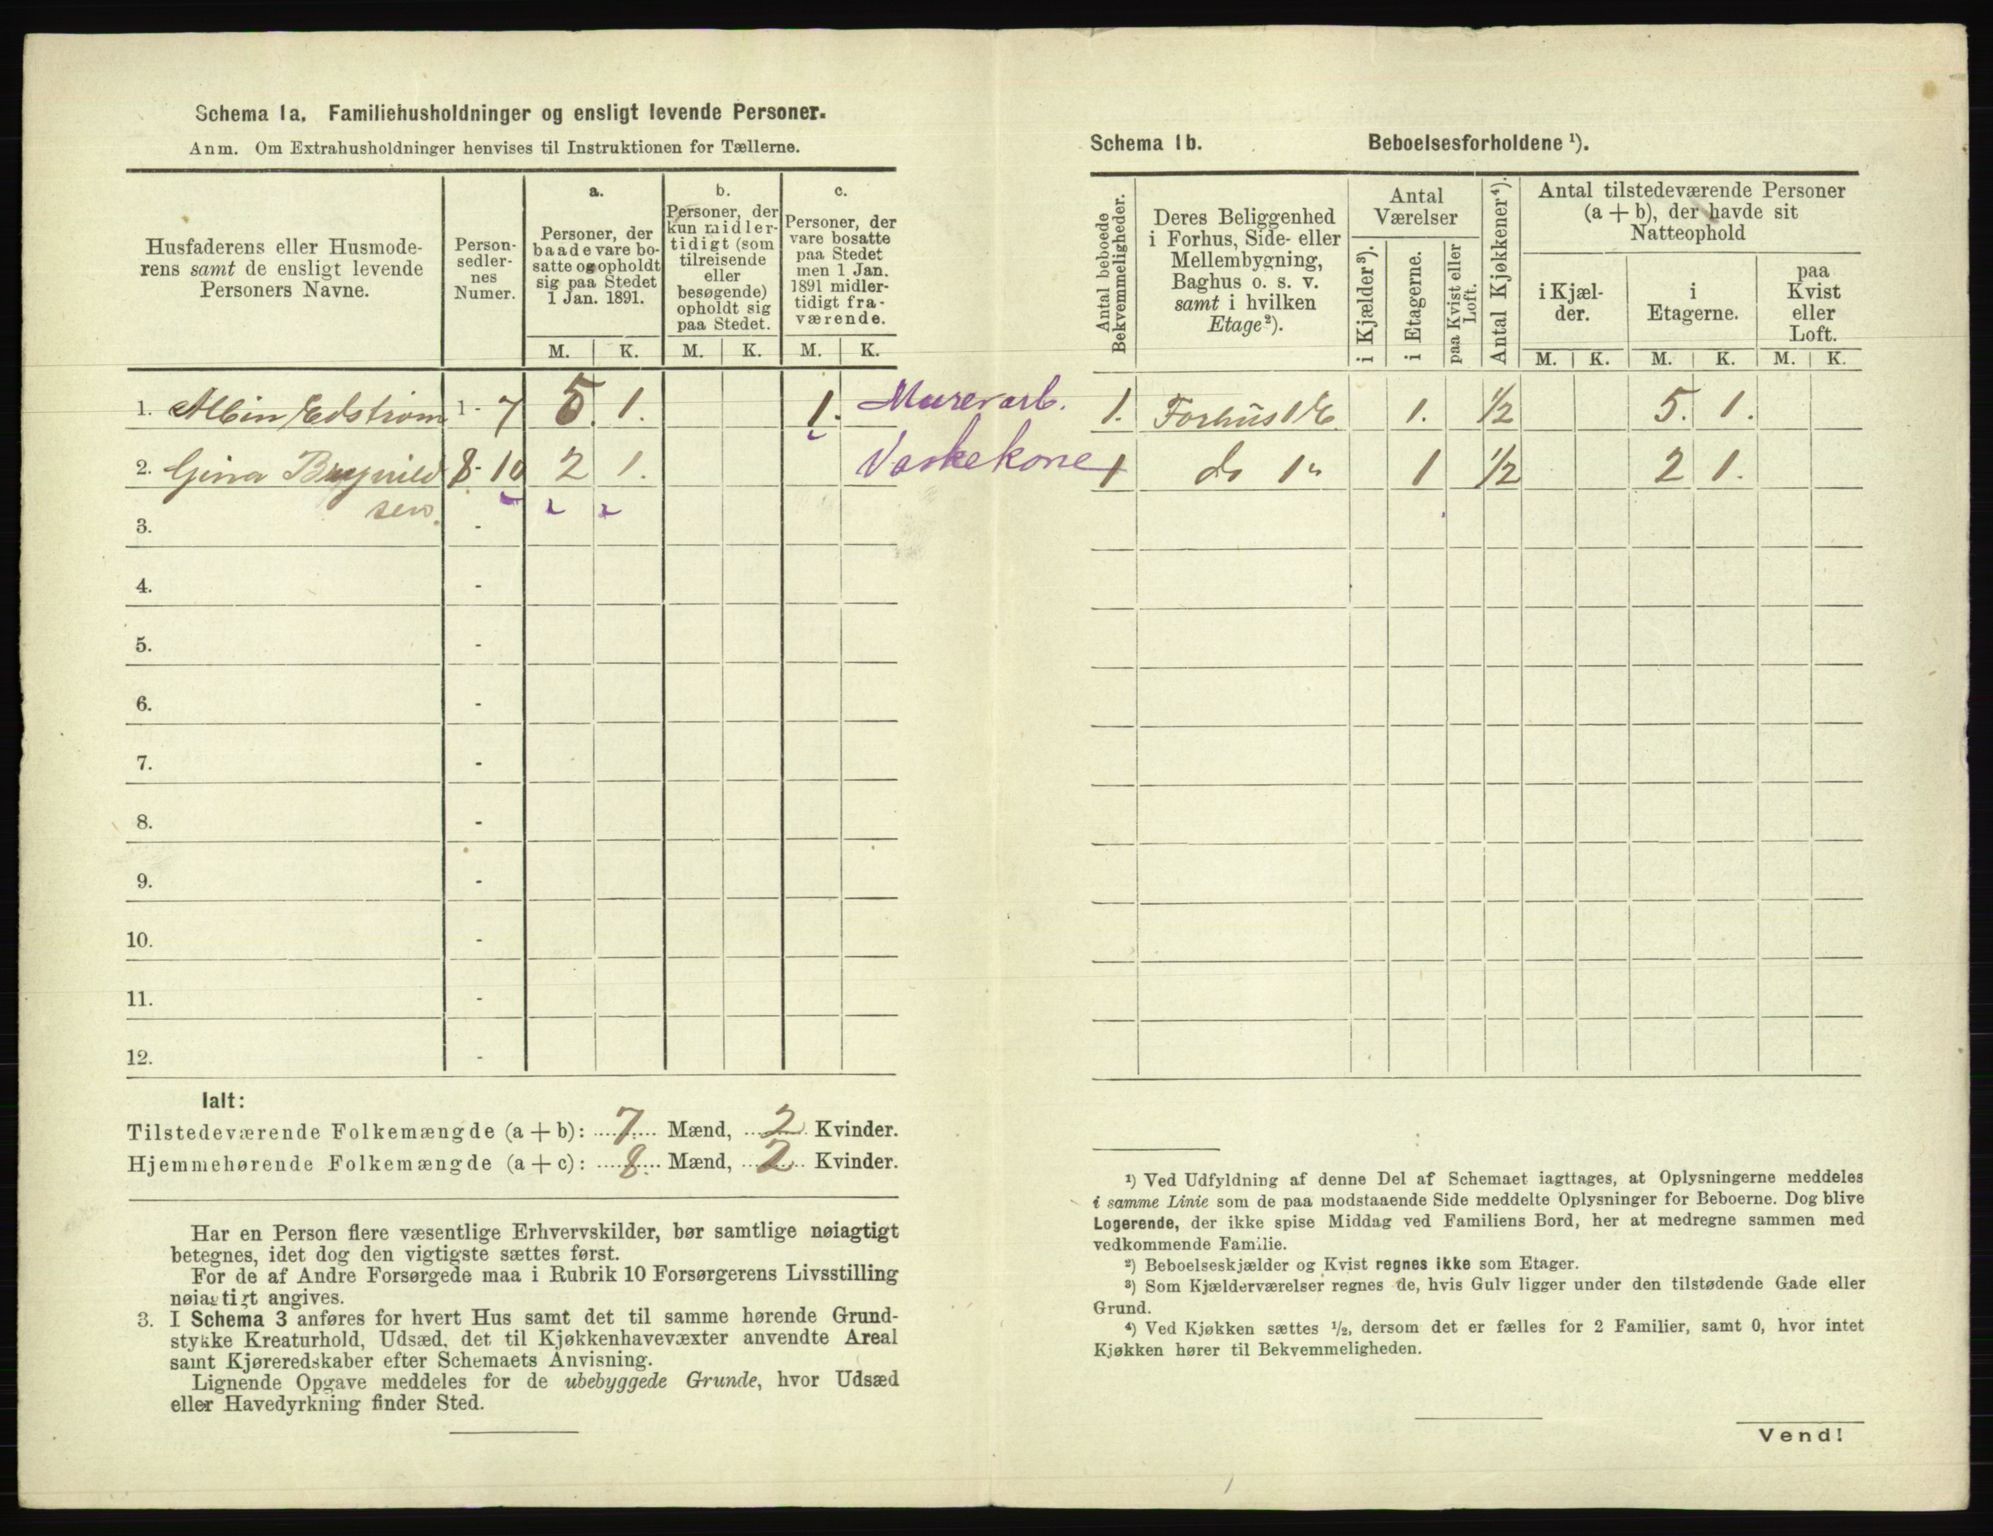 Schema 1a. Familiehusholdninger og ensligt levende Personer.
Anm. Om Extrahusholdninger henvises til Instruktionen for Tællerne.
Husfaderens eller Husmoderens samt de ensligt levende Personers Navne.
Personsedlernes Numer.
a.
Personer, der baade vare bosatte og opholdt sig paa Stedet 1 Jan. 1891.
b.
Personer, der kun midlertidigt (som tilreisende eller besøgende) opholdt sig paa Stedet.
c.
Personer, der vare bosatte paa Stedet men 1 Jan. 1891 midlertidigt fraværende.
M. K. M. K. M. K.
1. Albin Edstrøm 1 - 7 5. 1. 1. Murerarb.
2. Gina Brynild 8 - 10 2 1. Vaskekone
sen.
3. -
4. -
5. -
6. -
7. -
8. -
9. -
10. -
11. -
12. -
Ialt:
Tilstedeværende Folkemængde (a + b): 7 Mænd, 2 Kvinder.
Hjemmehørende Folkemængde (a + c): 8 Mænd, 2 Kvinder.
Har en Person flere væsentlige Erhvervskilder, bør samtlige nøiagtigt
betegnes, idet dog den vigtigste sættes først.
For de af Andre Forsørgede maa i Rubrik 10 Forsørgerens Livsstilling
nøiagtigt angives.
3. I Schema 3 anføres for hvert Hus samt det til samme hørende Grund-
stykke Kreaturhold, Udsæd, det til Kjøkkenhavevæxter anvendte Areal
samt Kjøreredskaber efter Schemaets Anvisning.
Lignende Opgave meddeles for de ubebyggede Grunde, hvor Udsæd
eller Havedyrkning finder Sted.
Schema 1b. Beboelsesforholdene ¹).
Antal beboede Bekvemmeligheder.
Deres Beliggenhed i Forhus, Side- eller Mellembygning, Baghus o. s. v. samt i hvilken Etage²).
Antal Værelser
i Kjælder³).
i Etagerne.
paa Kvist eller Loft.
Antal Kjøkkener⁴).
Antal tilstedeværende Personer (a + b), der havde sit Natteophold
i Kjælder.
i Etagerne.
paa Kvist eller Loft.
M. K. M. K. M. K.
1. Forhus 1 E 1. 1/2 5. 1.
1 do 1 " 1 1/2 2 1.
¹) Ved Udfyldning af denne Del af Schemaet iagttages, at Oplysningerne meddeles
i samme Linie som de paa modstaaende Side meddelte Oplysninger for Beboerne. Dog blive
Logerende, der ikke spise Middag ved Familiens Bord, her at medregne sammen med
vedkommende Familie.
²) Beboelseskjælder og Kvist regnes ikke som Etager.
³) Som Kjælderværelser regnes de, hvis Gulv ligger under den tilstødende Gade eller
Grund.
⁴) Ved Kjøkken sættes ½, dersom det er fælles for 2 Familier, samt 0, hvor intet
Kjøkken hører til Bekvemmeligheden.
Vend!